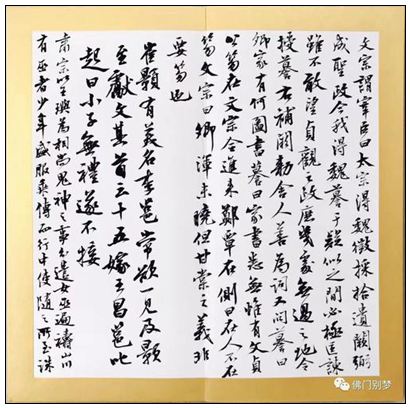 文宗謂宰臣曰太宗得魏徵採拾遺闕弼
成聖政今我得魏謩于疑似之間必極匡諫
雖不敢望貞觀之政庶幾處無過之地令
授謩右補闕勅舍人善為詞又問謩曰
卿家有何圖書謩曰家書悉無惟有文貞
公笏在文宗令進來鄭覃在側曰在人不在
笏文宗曰卿渾未曉但甘棠之義非
要笏也
崔顥有美名李邕常欲一見及顥
至獻文其首云十五嫁王昌邕叱
起曰小子無禮遂不接
肅宗以王璵為相尚鬼神之事分遣女巫遍禱山川
有巫者少年盛服乘傳而行中使隨之所至誅
佛门别梦